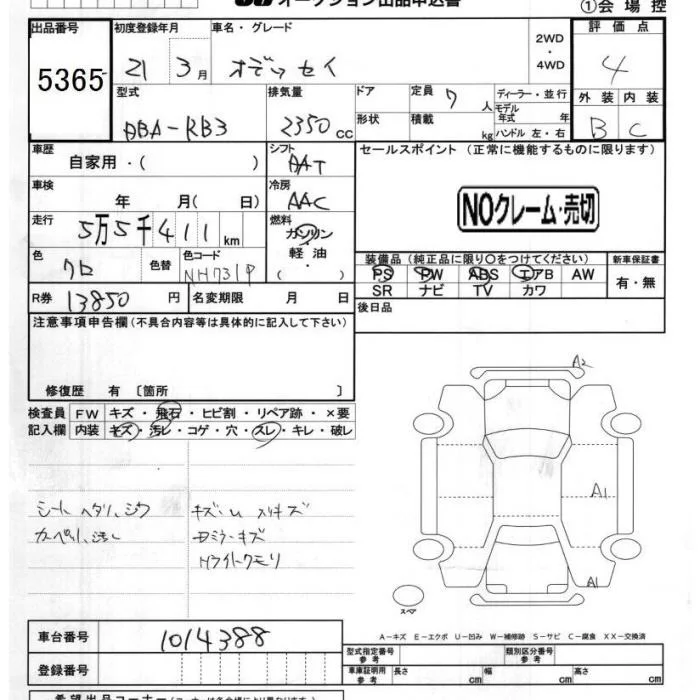 オークション出品申込書 ①会場控
出品番号 初度登録年月 車名・グレード 2WD・4WD 評価点
5365 21 3月 オデッセイ 4
型式 排気量 ドア 定員 7人 ディーラー・並行 外装 内装
DBA-RB3 2350cc 形状 積載 kg モデル年式 年 ハンドル 左・右 B C
車歴 自家用・( ) シフト AAT セールスポイント (正常に機能するものに限ります)
車検 年 月( 日) 冷房 AAC NOクレーム・売切
走行 5万5千411km 燃料 ガソリン 軽油・( )
装備品 (純正品に限り○をつけてください) 新車保証書
色 クロ 色替 色コード NH731P PS PW ABS エアB AW 有・無
SR ナビ TV カワ
R券 13850円 名変期限 月 日 後日品
注意事項申告欄 (不具合内容等は具体的に記入して下さい)
修復歴 有 〔箇所 〕
検査員 FW キズ・飛石・ヒビ割・リペア跡・×要
記入欄 内装 キズ・汚レ・コゲ・穴・スレ・キレ・破レ
A2
シート ヘタリ、シワ キズ・U スリキズ A1
カーペット汚レ Dミラーキズ
Hライトクモリ A1
スペア
A－キズ E－エクボ U－凹み W－補修跡 S－サビ C－腐食 XX－交換済
車台番号 1014388 型式指定番号 参考 類別区分番号 参考
登録番号 車庫証明用 参考 長さ cm 幅 cm 高さ cm
希望出品コーナー